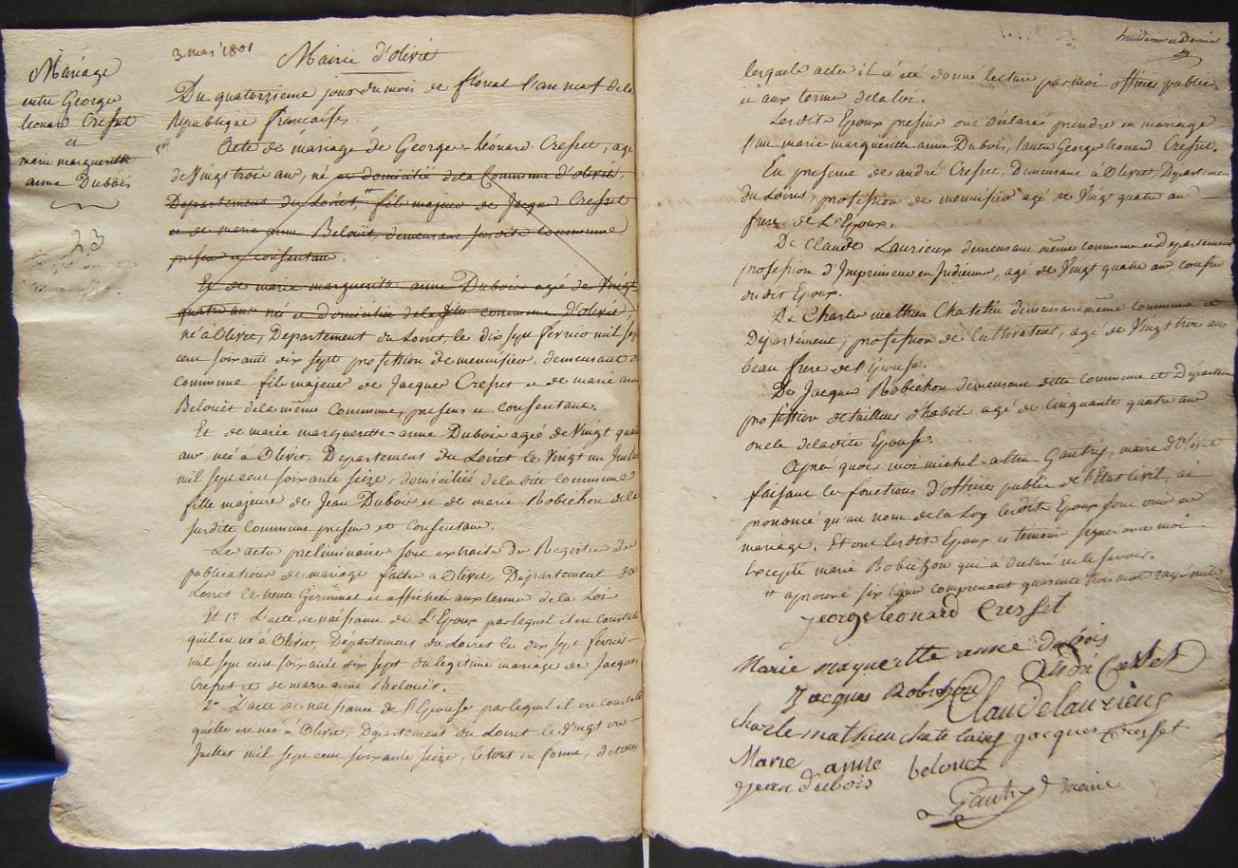 3 mai 1801
Mairie d'olivet
Mariage
entre George
léonard Cresset
et
marie marguerite
anne Dubois
23
Du quatorzieme jour du mois de floreal l'an neuf de la
Republique françaises.
Acte de mariage de George-Léonard Cresset, agé
de Vingt trois ans, né et domicilié de la Commune d'olivet,
Département du Loiret, fils majeur de Jacques Cresset
et de marie anne Belouet, demeurans susdite commune
presens et consentans.
Et de marie marguerite anne Dubois agé de Vingt
quatre ans né et domiciliée de la dite commune d'olivet,
né à Olivet, Departement du Loiret, le dix sept fevrier mil sept
cent soixante dix sept profession de menuisier, demeurant
commune fils majeur de Jacques Cresset et de marie anne
Belouet de la même Commune, presens et consentans.
Et de marie marguerite-anne Dubois agée de Vingt quatre
ans née à Olivet, Departement du Loiret le Vingt un Juillet
mil sept cent soixante seize, domiciliée de la dite commune
fille majeure de Jean Dubois et de marie Robichon de la
susdite commune presens et consentans.
Les actes preliminaires sont extraits du Registre des
publications de mariage faites à Olivet, Département du
Loiret le trente Germinal et affichées aux termes de la Loi
Et 1º L'acte de naissance de l'Epoux par lequel il en constate
qu'il est né à Olivet, Département du Loiret le dix sept fevrier
mil sept cent soixante dix sept du légitime mariage de Jacques
Cresset et de marie anne Belouet.
2º L'acte de naissance de l'Epouse par lequel il en constate
qu'elle est née à Olivet, Département du Loiret le Vingt un
Juillet mil sept cent soixante seize, le tout en forme, de tous
lesquels actes il a été donné lecture par moi officier public
et aux termes de la loi.
Lesdits Epoux presens ont déclaré prendre en mariage
l'un marie marguerite anne Dubois, l'autre George Léonard Cresset.
En presence de andré Cresset, Demeurant à Olivet, Departement
du Loiret, profession de menuisier agé de Vingt quatre ans
frere de l'Epoux.
De Claude Laurieux demeurant même commune et département
profession d'Imprimeur en Indienne, agé de Vingt quatre ans cousin
du dit Epoux.
De Charle mathieu Chatelin demeurant même commune et
Département, profession de Cultivateur, agé de Vingt trois ans
beau frere de l'Epouse.
De Jacques Robichon demeurant dite commune et Departement
profession de tailleur d'habit agé de Cinquante quatre ans
oncle de ladite Epouse.
Après quoi moi michel Gautry, maire d'Olivet
faisant les fonctions d'officier public de l'Etat Civil, ai
prononcé qu'au nom de la Loy lesdits Epoux sont unis en
mariage. Et ont lesdits Epoux et temoins signé avec moi
Excepté marie Robichon qui a declaré ne le savoir.
aprouvé six lignes comprenant quarante trois mots rayés nuls
george leonard Cresset
Marie marguerite anne dubois
André Cresset
Jacques Robichon
Claude laurieux
charle mathieu chatelain jacques Cresset
Marie anne belouet
jean dubois
Gautry maire